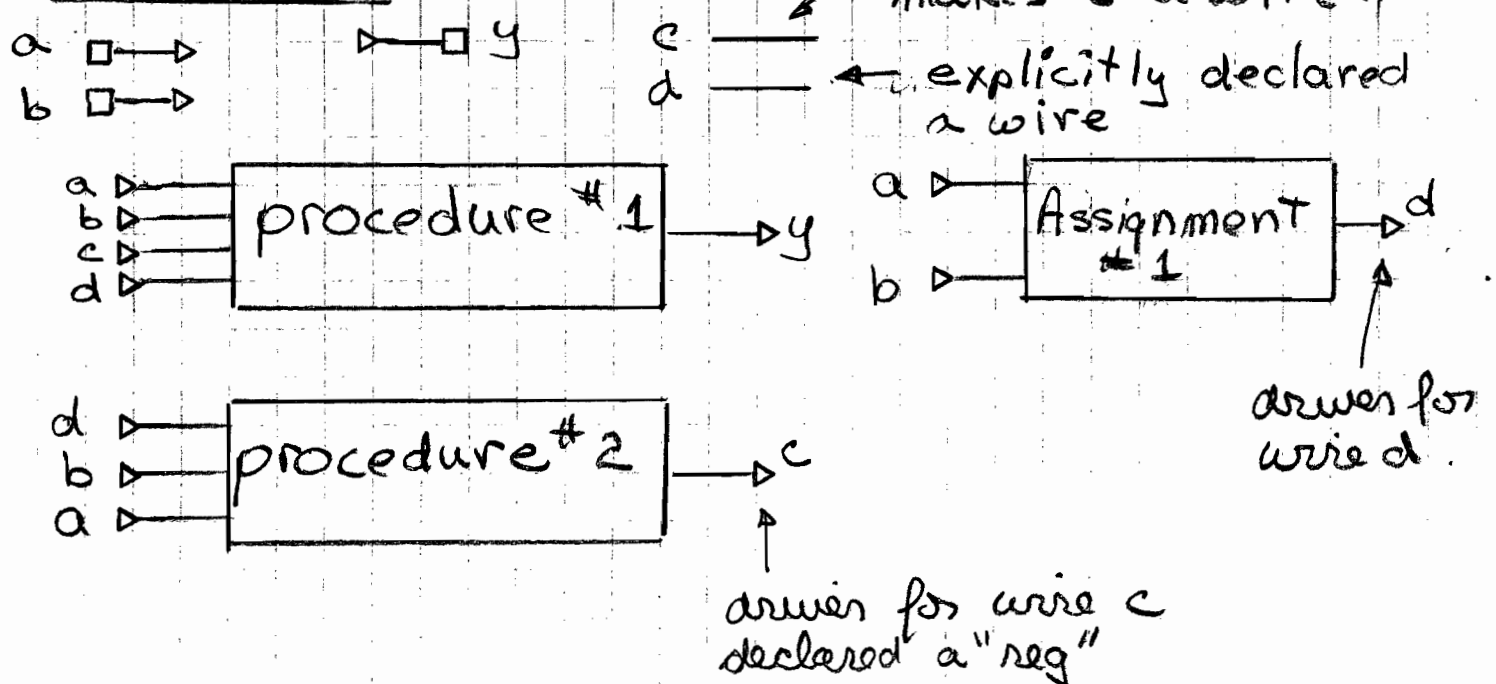 a
b
y
c
d
explicitly declared
a wire
a
b
c
d
procedure #1
y
a
b
Assignment
#1
d
driver for
wire d.
d
b
a
procedure #2
c
driver for wire c
declared a "reg"